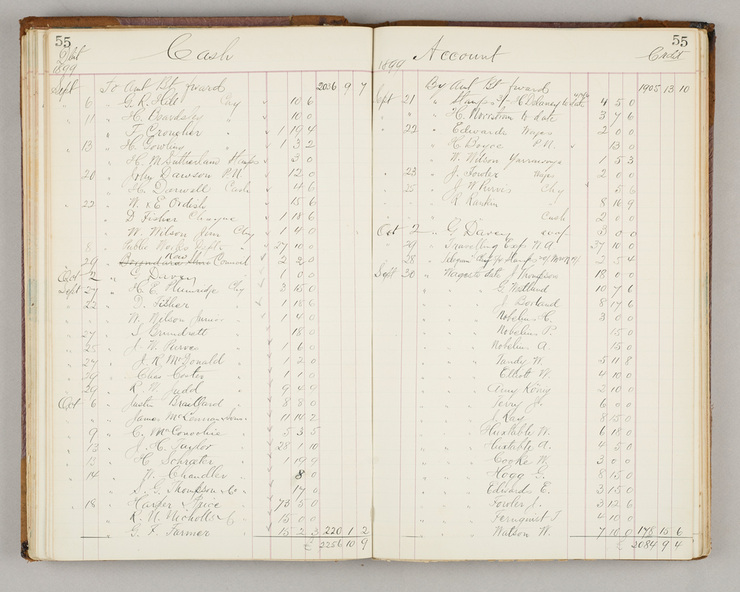 55
Cash
1899
Sept To Amt Bt forward 2036 9 7
6 G. R. Hill Chy 10 6
11 H. Beardsley 10 0
T. Croucher 1 19 4
13 H. Gowling 1 3 2
H. M. Sutherland 3 0
20 John Dawson P.N. 12 0
H. Darwell Cash 14 6
22 W. & E. Ordish 15 6
D. Fisher Cheque 1 18 6
W. Wilson Junr Chy 1 4 0
8 Public Works Dept 27 10 0
29 Council 2 2 3
Oct 2 G. Davey 1 0 0
Sept 27 H. E. Plummridge Chy 2 15 0
22 D. Fisher 1 18 6
W. Wilson Junior 1 4 0
27 S. Brundrett 18 0
25 J. W. Purves 1 6 0
27 J. R. McDonald 1 2 0
Chas Coster 1 1 0
29 R. W. Judd 9 4 9
Oct 6 Justin 8 8 0
James 11 14 2
9 C. McConochie 5 3 5
13 J. H. Taylor 28 1 10
13 H. Schroeter 1 19 9
14 W. Chandler 8 0
Thompson & Co 17 0
18 Harper & Price 73 5 0
R. M. Nicholls & Co 15 0 0
G. F. Farmer 15 2 3 220 1 2
£ 2256 10 9
55
1899 Account Credit
By Amt Bt forward 1905 13 10
Sept 21 Stamps H. Delaney to date 4 5 0
H. to date 3 7 6
22 Edwards Wages 2 0 0
H Boyce P.N. 13 0
W. Wilson 1 5 3
23 J. Fowler Wages 2 0 0
25 J. W. Purvis Chy 5 6
R Rankin 8 10 9
Cash 2 0 0
Oct 2 G. Davey exp 3 0 0
29 Travelling Exp W A 37 10 0
28
Sept 30 Wages to date J Thompson 18 0 0
G. Maitland 10 7 6
J. Borland 8 17 6
Nobelin H. 3 0 0
Nobelin P. 15 0
Nobelin A. 15 0
Tandy W. 5 11 8
Elliott W. 4 10 0
Amy König 2 10 0
Terry Jr. 6 0 0
J Kay 8 15 0
Huxtable W. 6 18 0
Huxtable A. 4 5 0
Cooke W. 3 0 0
Hogg G. 8 15 0
Edwards E. 3 15 0
Fowler J. 3 12 6
Fernquist J 4 10 0
Watson W. 7 10 0 178 15 6
£ 2084 9 4